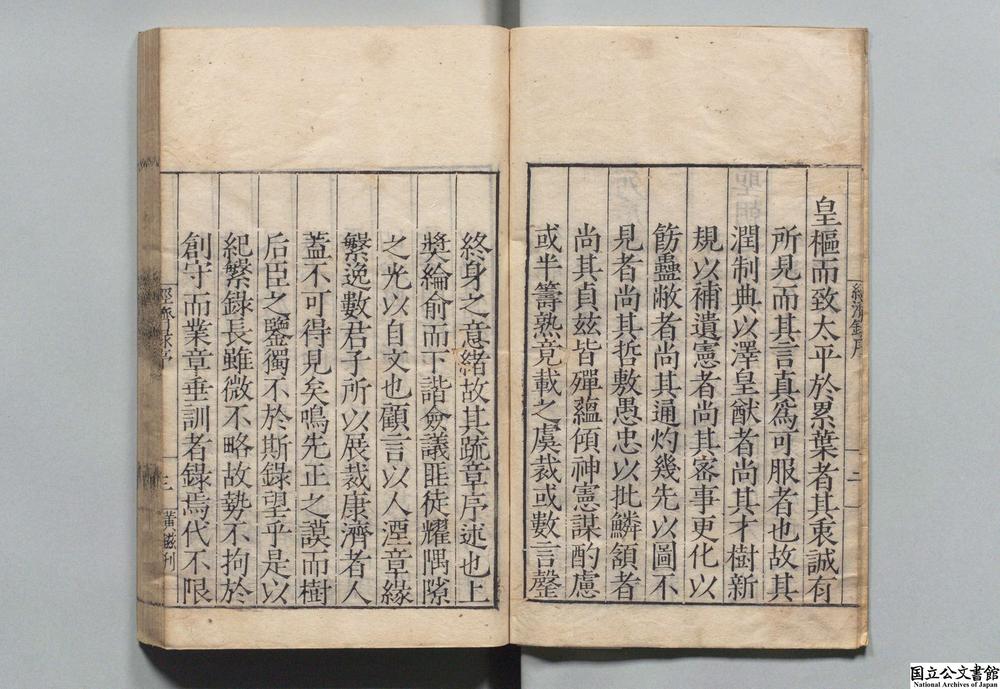 經濟錄序
二
皇樞而致太平於累葉者其衷誠有
所見而其言真為可服者也故其
潤制典以澤皇猷者尚其才樹新
規以補遺憲者尚其密事更化以
飭蠱敝者尚其通灼幾先以圖不
見者尚其哲敷愚忠以批鱗頷者
尚其貞茲皆殫蘊傾神憲謀酌慮
或半籌熟竟載之虞裁或數言罄
終身之意緒故其疏章序述也上
獎綸俞而下諧僉議匪徒耀隅隙
之光以自文也顧言以人湮章緣
繄逸數君子所以展裁康濟者人
蓋不可得見矣鳴先正之謨而樹
后臣之鑒獨不於斯錄望乎是以
紀繄錄長雖微不略故勢不拘於
創守而業章垂訓者錄焉代不限
經濟錄序
三
黃 刊
国立公文書館
National Archives of Japan